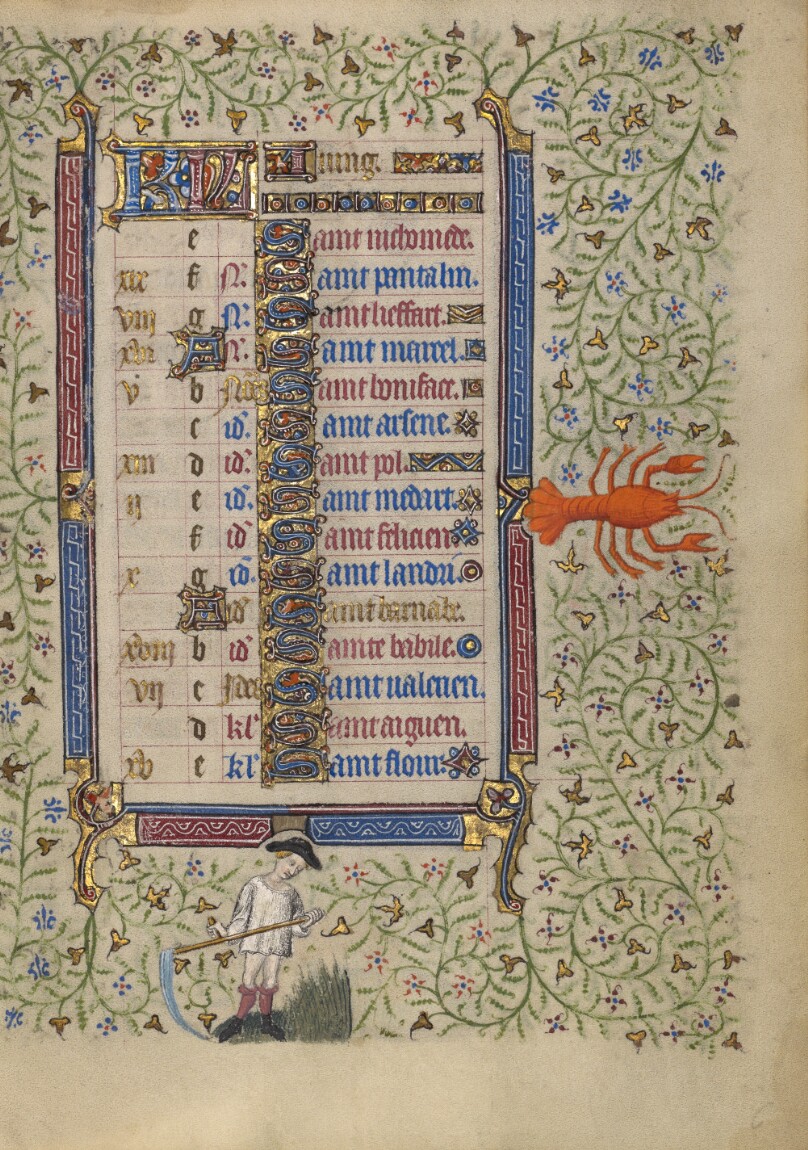 KL Juing.
e Saint nichomede.
xix f N. Saint pantalin.
viij g N. Saint lieffart.
xvi A N. Saint marcel.
v b Saint boniface.
c id. Saint arsene.
xiii d id. Saint pol.
ij e id. Saint medart.
f id Saint felicien
x g id. Saint landri.
A id Saint barnabe.
xviii b id Sainte babile.
vij c Saint valerien.
d kl' Saint aiguen.
xv e kl'